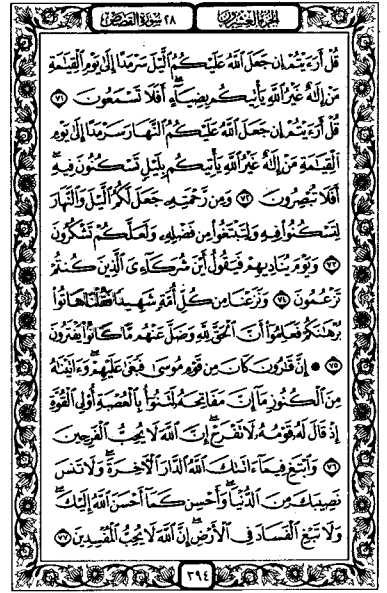 الجزء العشرون
٢٨ سورة القصص
قُلْ أَرَءَيْتُمْ إِن جَعَلَ ٱللَّهُ عَلَيْكُمُ ٱلَّيْلَ سَرْمَدًا إِلَىٰ يَوْمِ ٱلْقِيَٰمَةِ
مَنْ إِلَٰهٌ غَيْرُ ٱللَّهِ يَأْتِيكُم بِضِيَآءٍ ۖ أَفَلَا تَسْمَعُونَ ٧١
قُلْ أَرَءَيْتُمْ إِن جَعَلَ ٱللَّهُ عَلَيْكُمُ ٱلنَّهَارَ سَرْمَدًا إِلَىٰ يَوْمِ
ٱلْقِيَٰمَةِ مَنْ إِلَٰهٌ غَيْرُ ٱللَّهِ يَأْتِيكُم بِلَيْلٍ تَسْكُنُونَ فِيهِ ۖ
أَفَلَا تُبْصِرُونَ ٧٢ وَمِن رَّحْمَتِهِۦ جَعَلَ لَكُمُ ٱلَّيْلَ وَٱلنَّهَارَ
لِتَسْكُنُوا۟ فِيهِ وَلِتَبْتَغُوا۟ مِن فَضْلِهِۦ وَلَعَلَّكُمْ تَشْكُرُونَ
٧٣ وَيَوْمَ يُنَادِيهِمْ فَيَقُولُ أَيْنَ شُرَكَآءِىَ ٱلَّذِينَ كُنتُمْ
تَزْعُمُونَ ٧٤ وَنَزَعْنَا مِن كُلِّ أُمَّةٍ شَهِيدًا فَقُلْنَا هَاتُوا۟
بُرْهَٰنَكُمْ فَعَلِمُوٓا۟ أَنَّ ٱلْحَقَّ لِلَّهِ وَضَلَّ عَنْهُم مَّا كَانُوا۟ يَفْتَرُونَ
٧٥ ۞ إِنَّ قَٰرُونَ كَانَ مِن قَوْمِ مُوسَىٰ فَبَغَىٰ عَلَيْهِمْ ۖ وَءَاتَيْنَٰهُ
مِنَ ٱلْكُنُوزِ مَآ إِنَّ مَفَاتِحَهُۥ لَتَنُوٓأُ بِٱلْعُصْبَةِ أُو۟لِى ٱلْقُوَّةِ
إِذْ قَالَ لَهُۥ قَوْمُهُۥ لَا تَفْرَحْ ۖ إِنَّ ٱللَّهَ لَا يُحِبُّ ٱلْفَرِحِينَ
٧٦ وَٱبْتَغِ فِيمَآ ءَاتَىٰكَ ٱللَّهُ ٱلدَّارَ ٱلْـَٔاخِرَةَ ۖ وَلَا تَنسَ
نَصِيبَكَ مِنَ ٱلدُّنْيَا ۖ وَأَحْسِن كَمَآ أَحْسَنَ ٱللَّهُ إِلَيْكَ ۖ
وَلَا تَبْغِ ٱلْفَسَادَ فِى ٱلْأَرْضِ ۖ إِنَّ ٱللَّهَ لَا يُحِبُّ ٱلْمُفْسِدِينَ ٧٧
٣٩٤